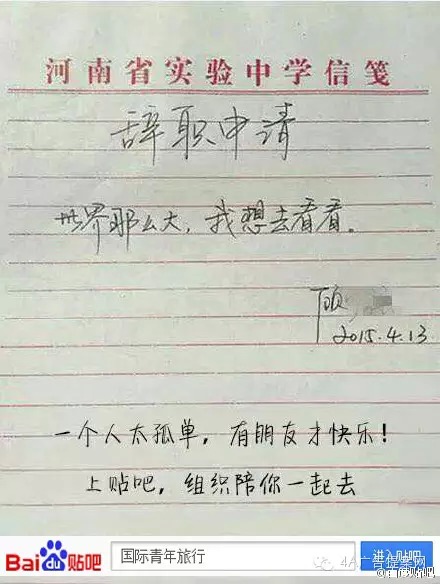 河南省实验中学信笺
辞职申请
世界那么大，我想去看看。
顾
2015.4.13
一个人太孤单，有朋友才快乐！
上贴吧，组织陪你一起去
Bai du 贴吧
国际青年旅行
进入贴吧
4A广告提案网